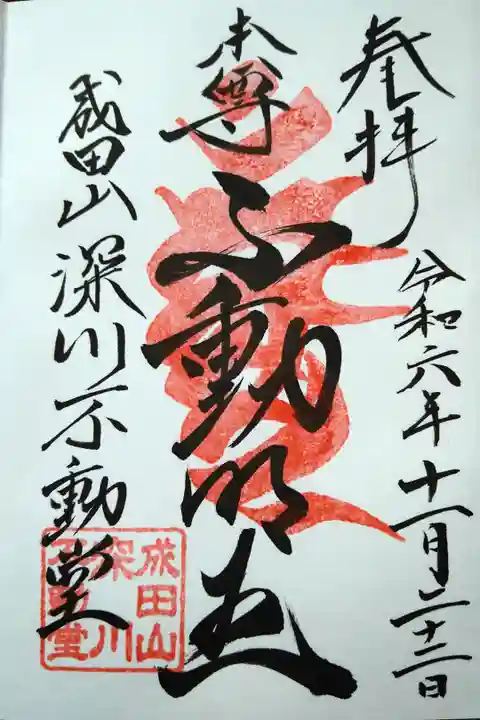 奉拝
令和六年十一月二十二日
本尊
不動明王
成田山深川不動堂
成田山
深川
不動堂